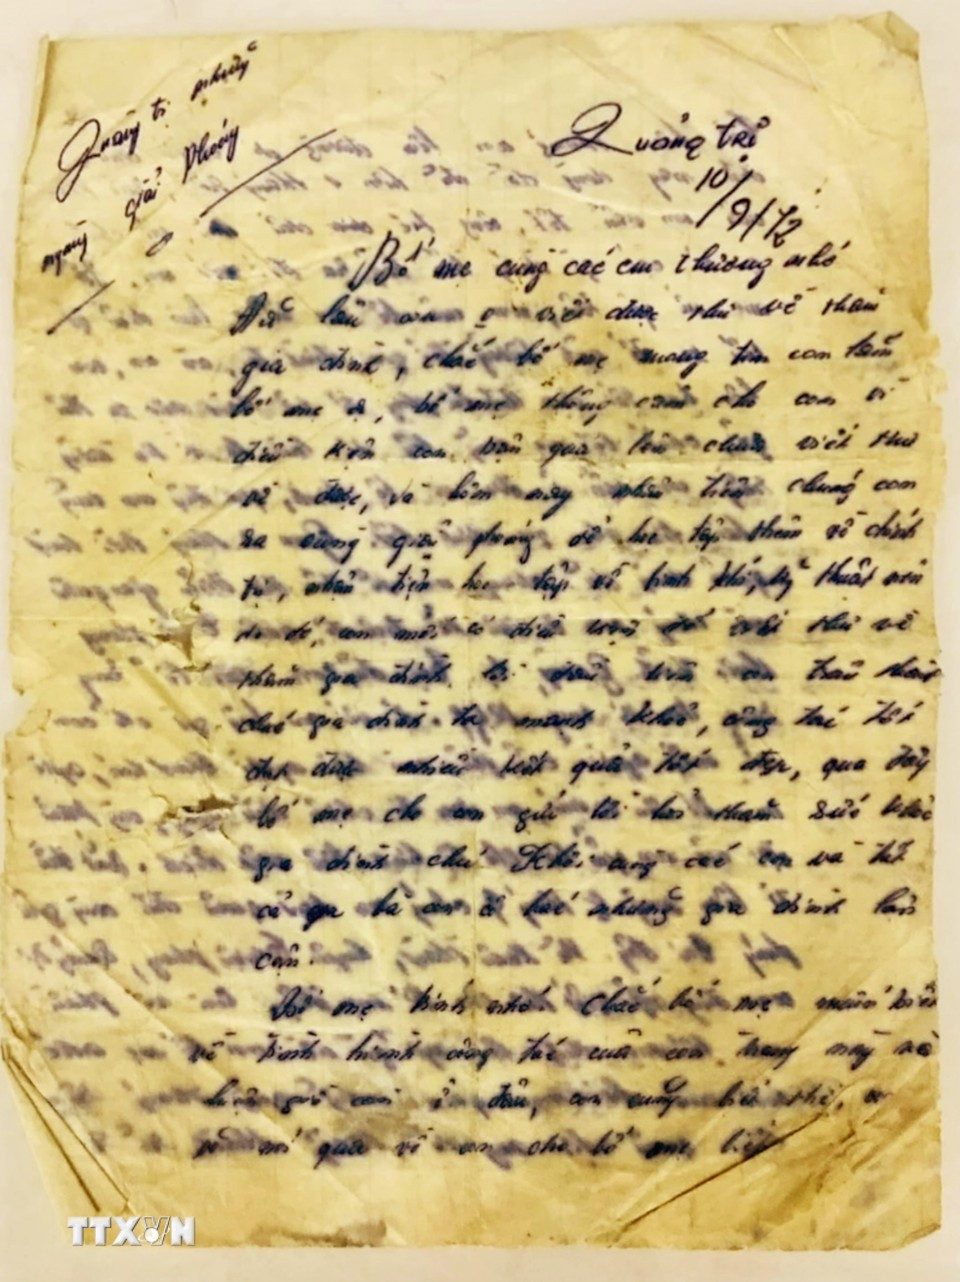 Quảng trị những
ngày giải Phóng
Quảng trị
10/9/72
Bố mẹ cùng các em thương nhớ
lâu con viết được thư về thăm
gia đình, chắc bố mẹ mong tin con lắm
bố mẹ ạ, bố mẹ thông cảm cho con vì
điều kiện con bận quá lên chưa viết thư
về được, và hôm nay nhân tiện chúng con
ra vùng giải phóng để học tập thêm về chính
trị, nhân tiện học tập về binh khí, kỹ thuật nên
do đó, con mới có điều kiện để viết thư về
thăm gia đình, lời đầu tiên con
chúc gia đình ta mạnh khoẻ, công tác tốt
đạt được nhiều kết quả tốt đẹp, qua đây
bố mẹ cho con gửi lời hỏi thăm sức khoẻ
gia đình chú cùng các em và tất
cả bà con cô bác những gia đình lân
cận.
Bố mẹ kính nhớ. Chắc bố mẹ muốn biết
về tình hình công tác của con trong này và
hiện giờ con ở đâu, con cũng biết thế,
qua về con cho bố mẹ biết
TTXVN